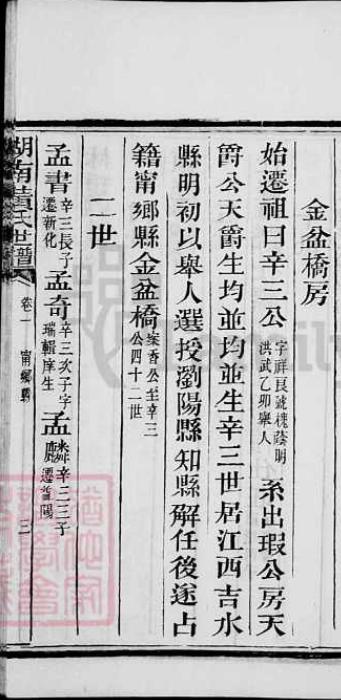 金盆橋房
始遷祖曰辛三公字祥長號槐蔭明洪武乙卯舉人系出瑕公房天
爵公天爵生均並均並生辛三世居江西吉水
縣明初以舉人選授瀏陽縣知縣解任後遂占
籍甯鄉縣金盆橋案香公至辛三公四十二世
二世
孟書辛三長子遷新化孟奇辛三次子字瑞輯庠生孟麟辛三三子遷
湖南黃氏世譜 卷一 甯鄉縣 三